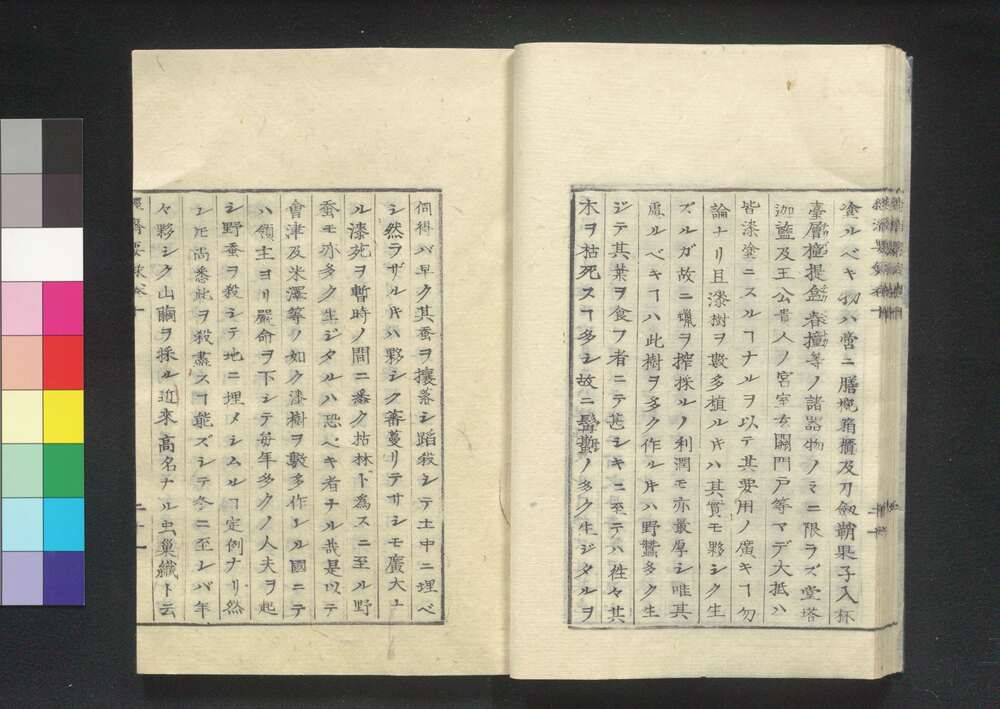 塗ルベキ物ハ啻ニ膳椀箱櫃及刀劔鞘果子入杯
臺層橦提盒春撞等ノ諸器物ノミニ限ラズ堂塔
迦藍及王公貴人ノ宮室玄關門戸等マデ大抵ハ
皆漆塗ニスルヿナルヲ以テ其要用ノ廣キヿ勿
論ナリ且漆樹ヲ數多植ルトキハ其實モ夥シク生
ズルガ故ニ蠟ヲ搾採ルノ利潤モ亦最厚シ唯其
慮ルベキヿハ此樹ヲ多ク作ルトキハ野蠶多ク生
ジテ其葉ヲ食フ者ニテ甚シキニ至テハ徃々其
木ヲ枯死スヿ多シ故ニ野蠶ノ多ク生ジタルヲ
伺得バ早ク其蚕ヲ攘落シ蹈殺シテ土中ニ埋ベ
シ然ラザルトキハ夥シク蕃蔓リテサシモ廣大ナ
ル漆苑ヲ暫時ノ間ニ悉ク枯林ト為スニ至ル野
蚕モ亦多ク生ジタルハ恐ベキ者ナル哉是以テ
會津及米澤等ノ如ク漆樹ヲ數多作レル國ニテ
ハ領主ヨリ嚴命ヲ下シテ毎年多クノ人夫ヲ起
シ野蚕ヲ殺シテ地ニ埋メシムルヿ定例ナリ然
レドモ尚悉此ヲ殺盡スヿ能ズシテ冬ニ至レバ年
々夥シク山繭ヲ採ル近來高名ナル虫巢織ト云
二十一